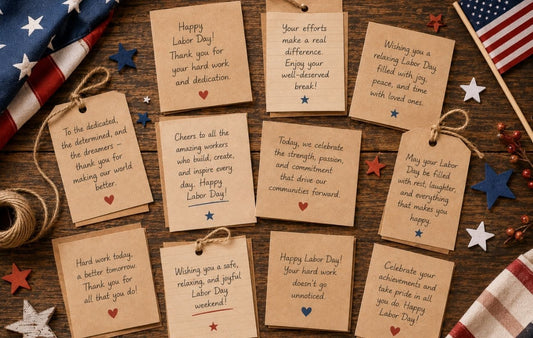 Happy
Labor Day!
Thank you for
your hard work
and dedication.
Your efforts
make a real
difference.
Enjoy your
well-deserved
break!
Wishing you a
relaxing Labor Day
filled with joy,
peace, and time
with loved ones.
To the dedicated,
the determined, and
the dreamers –
thank you for
making our world
better.
Cheers to all the
amazing workers
who build, create,
and inspire every
day. Happy
Labor Day!
Today, we celebrate
the strength, passion,
and commitment
that drive our
communities forward.
May your Labor
Day be filled
with rest, laughter,
and everything
that makes you
happy.
Hard work today,
a better tomorrow.
Thank you for
all that you do!
Wishing you a safe,
relaxing, and joyful
Labor Day
weekend!
Happy Labor Day!
Your hard work
doesn't go
unnoticed.
Celebrate your
achievements and
take pride in all
you do. Happy
Labor Day!